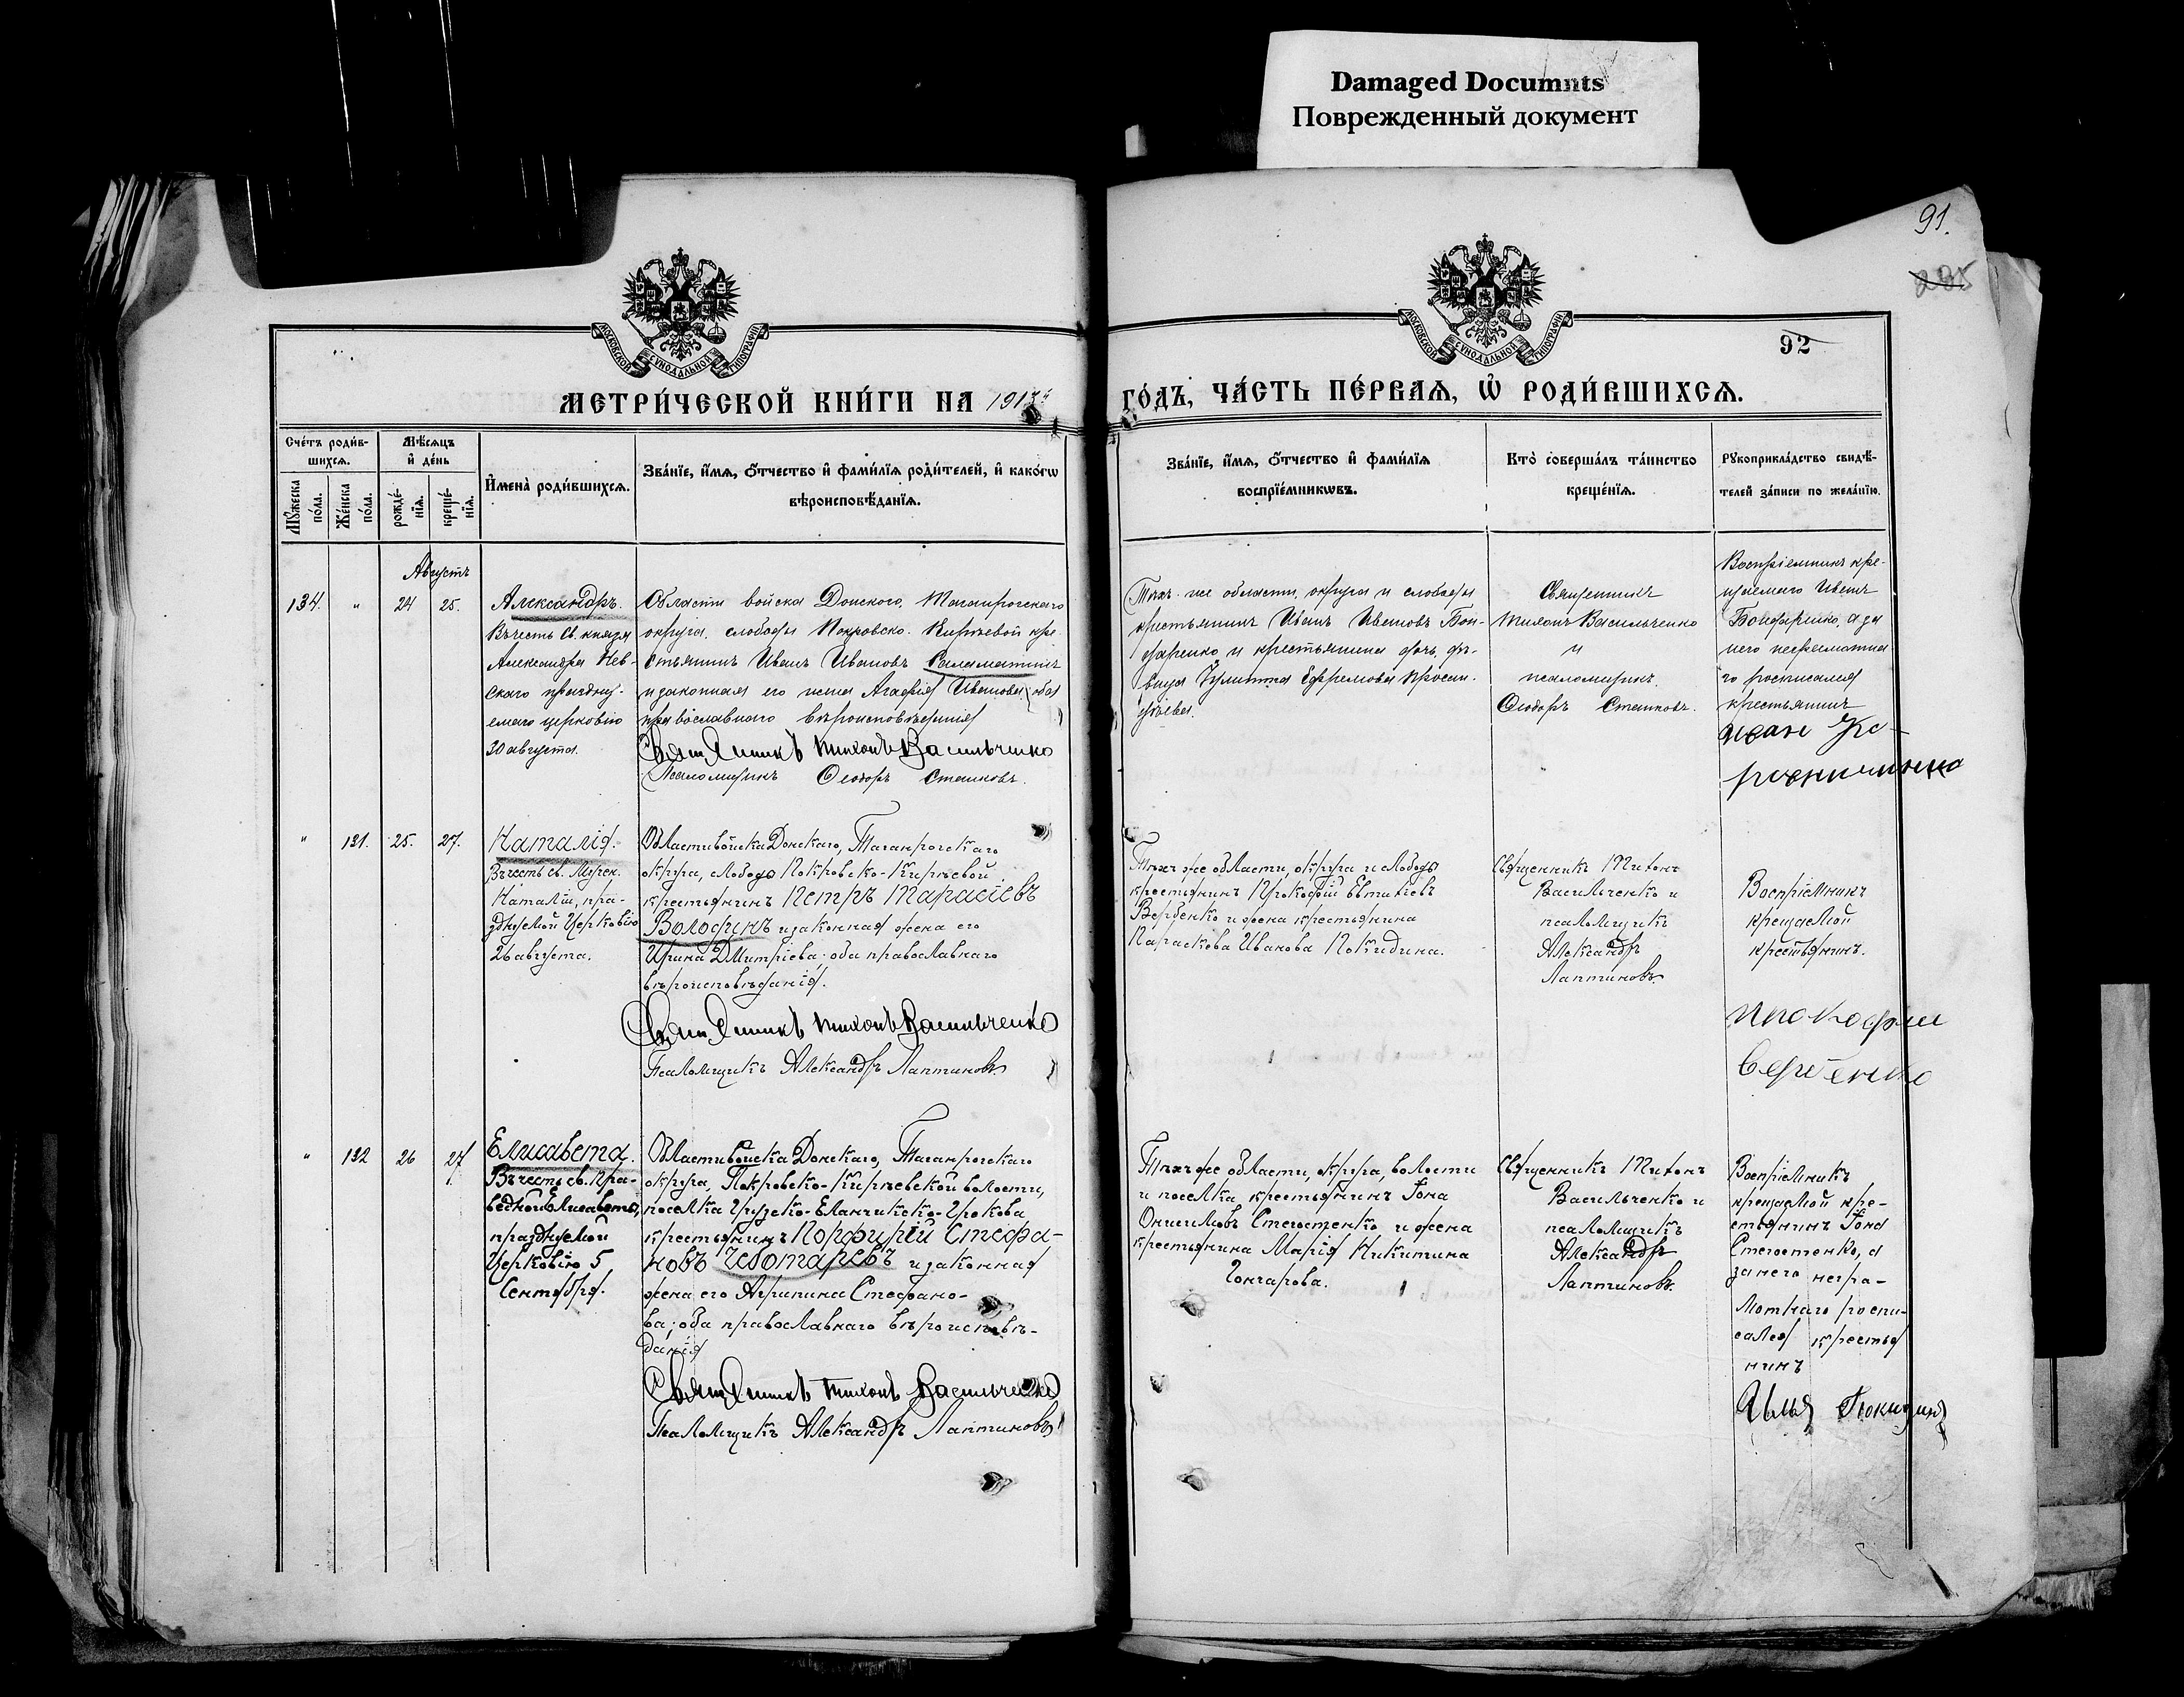 Damaged Documnts
Поврежденный документ
91.
92
МОСКОВСКОЙ СУНОДАЛЬНОЙ ТИПОГРАФІИ
МОСКОВСКОЙ СУНОДАЛЬНОЙ ТИПОГРАФІИ
МЕТРИ́ЧЕСКОЙ КНИ́ГИ НА 191
ГО́ДЪ, ЧА́СТЬ ПЕ́РВАЯ, Ѡ҆ РОДИ́ВШИХСЯ.
Сче́тъ роди́в-
шихся.
Мѣ́сяцъ
и҆ де́нь
Мꙋ́жеска по́ла.
Же́нска по́ла.
рожде́-
нїя.
креще́-
нїя.
И҆мена̀ роди́вшихся.
Зва́нїе, и҆́мя, ѻ҆́тчество и҆ фами́лїя роди́телей, и҆ како́гѡ
вѣроисповѣ́данїя.
Зва́нїе, и҆́мя, ѻ҆́тчество и҆ фами́лїя
воспрїе́мникѡвъ.
Кто̀ соверша́лъ та́инство
креще́нїя.
Рꙋкоприкла́дство свидѣ́-
телей за́писи по жела́нїю.
Августъ
134. " 24 25.
Александръ.
Въ честь Св. князя
Александра Нев-
скаго праздну-
емаго церковію
30 августа.
Области войска Донского, Таганрогскаго
округа, слободы Покровско-Кирѣевой кре
стьянинъ Иванъ Ивановъ Саламатинъ
и законная его жена Агафія Иванова, оба
православнаго вѣроисповѣданія
Священникъ Тихонъ Васильченко
Псаломщикъ Ѳеодоръ Сташковъ.
Тѣхъ же области, округа и слободы
крестьянинъ Иванъ Ивановъ Бон-
даренко и крестьянина дочь, дѣ-
вица Іулитта Ефремова
Священникъ
Тихонъ Васильченко
и
псаломщикъ
Ѳеодоръ Сташковъ.
Воспріемникъ кре-
щаемаго Иванъ
Бондаренко, а за
него неграмотна
го росписался
крестьянинъ
" 131. 25. 27.
Наталія.
Въ честь Св. Мучен.
Наталіи, пра-
зднуемой Церковію
26 августа.
Области войска Донскаго, Таганрогскаго
округа, слободы Покровско-Кирѣевой
крестьянинъ Петръ Тарасіевъ
Волофинъ и законная жена его
Ирина Дмитріева; оба православнаго
вѣроисповѣданія.
Священникъ Тихонъ Васильченко
Псаломщикъ Александръ Лаптиновъ
Тѣхъ же области, округа и слободы
крестьянинъ Прокофій Евтихіевъ
Вербенко и жена крестьянина
Параскева Иванова Покидина.
Священникъ Тихонъ
Васильченко и
псаломщикъ
Александръ
Лаптиновъ.
Воспріемникъ
крещаемой
крестьянинъ.
Прокофии
Вербенко
" 132 26 27
Елисавета.
Въ честь св. Пра-
ведной Елисаветы,
празднуемой
Церковію 5
Сентября.
Области войска Донскаго, Таганрогскаго
округа, Покровско-Кирѣевской волости,
поселка Грузско-Еланчикско-Грекова
крестьянинъ Порфирій Стефа-
новъ Чеботаревъ и законная
жена его Агрипина Стефано-
ва; оба православнаго вѣроисповѣ-
данія
Священникъ Тихонъ Васильченко
Псаломщикъ Александръ Лаптиновъ
Тѣхъ же области, округа, волости
и поселка крестьянинъ Іона
Онисимовъ Стегостенко и жена
крестьянина Марія Никитина
Гончарова.
Священникъ Тихонъ
Васильченко и
псаломщикъ
Александръ
Лаптиновъ.
Воспріемникъ
крещаемой кре-
стьянинъ Іона
Стегостенко, а
за него негра-
мотнаго роспи-
сался крестья
нинъ
Илья Покидинъ